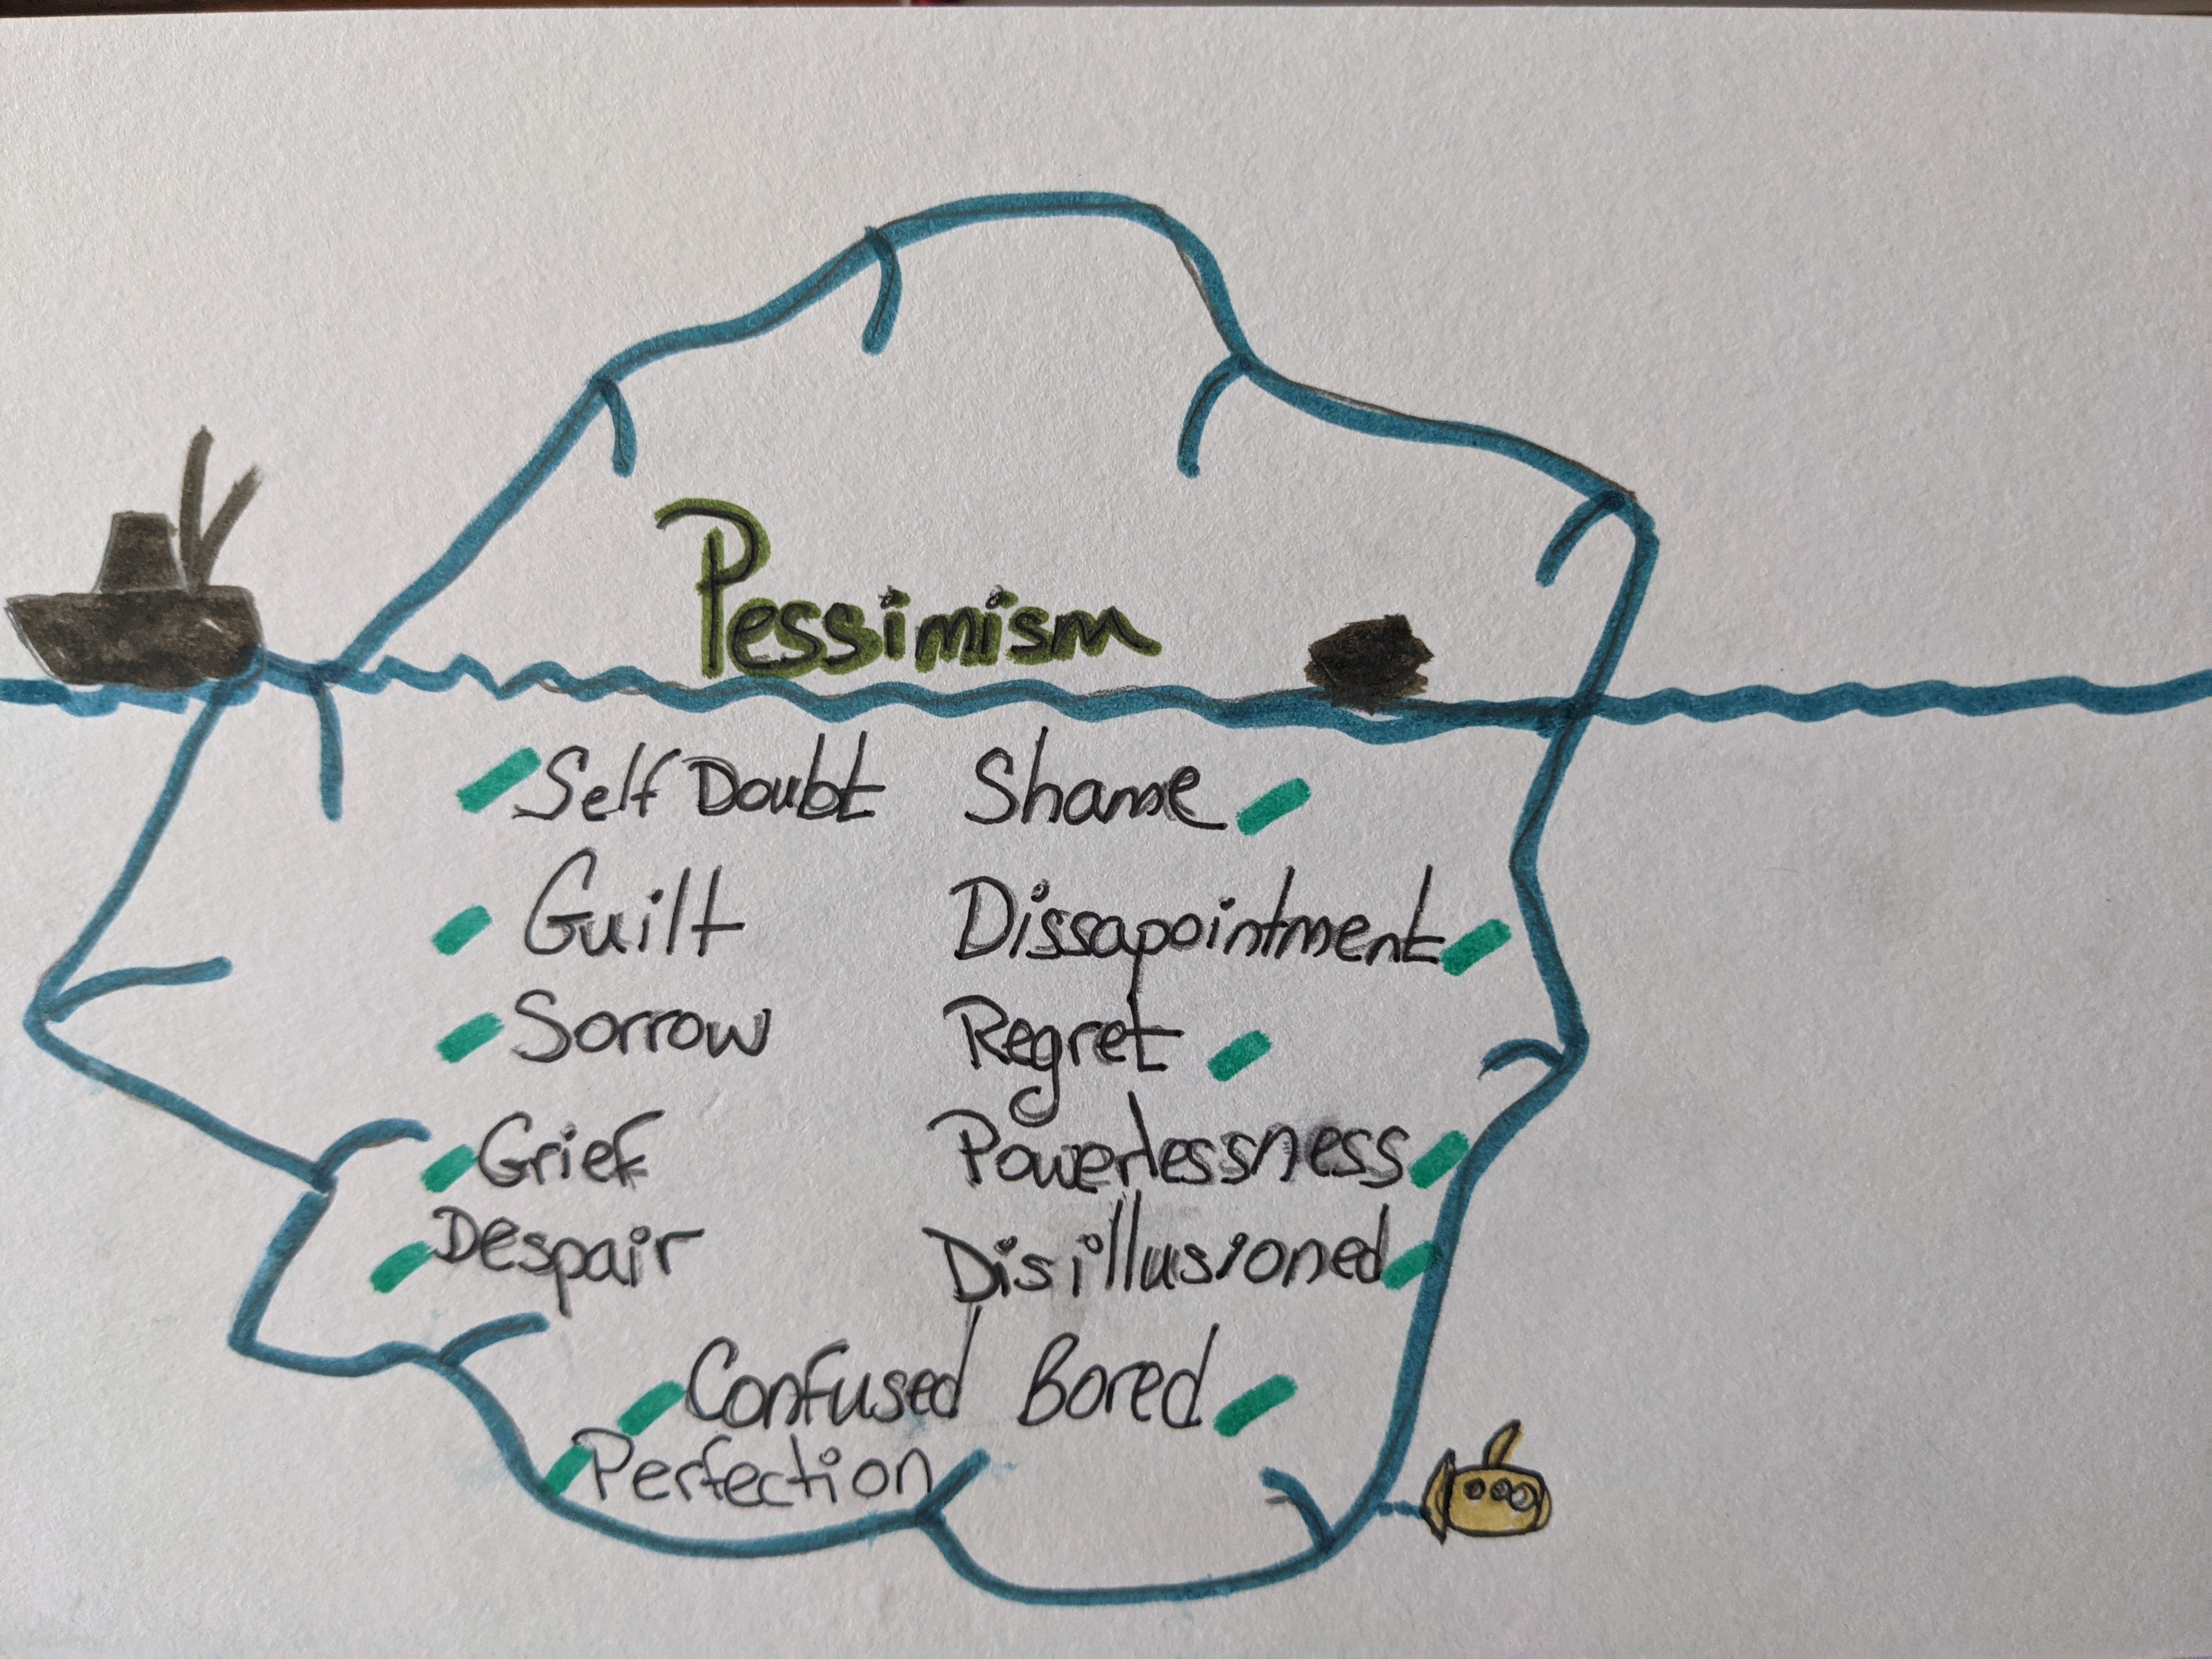 Pessimism
Self Doubt Shame
Guilt Dissapointment
Sorrow Regret
Grief Powerlessness
Despair Disillusioned
Confused Bored
Perfection